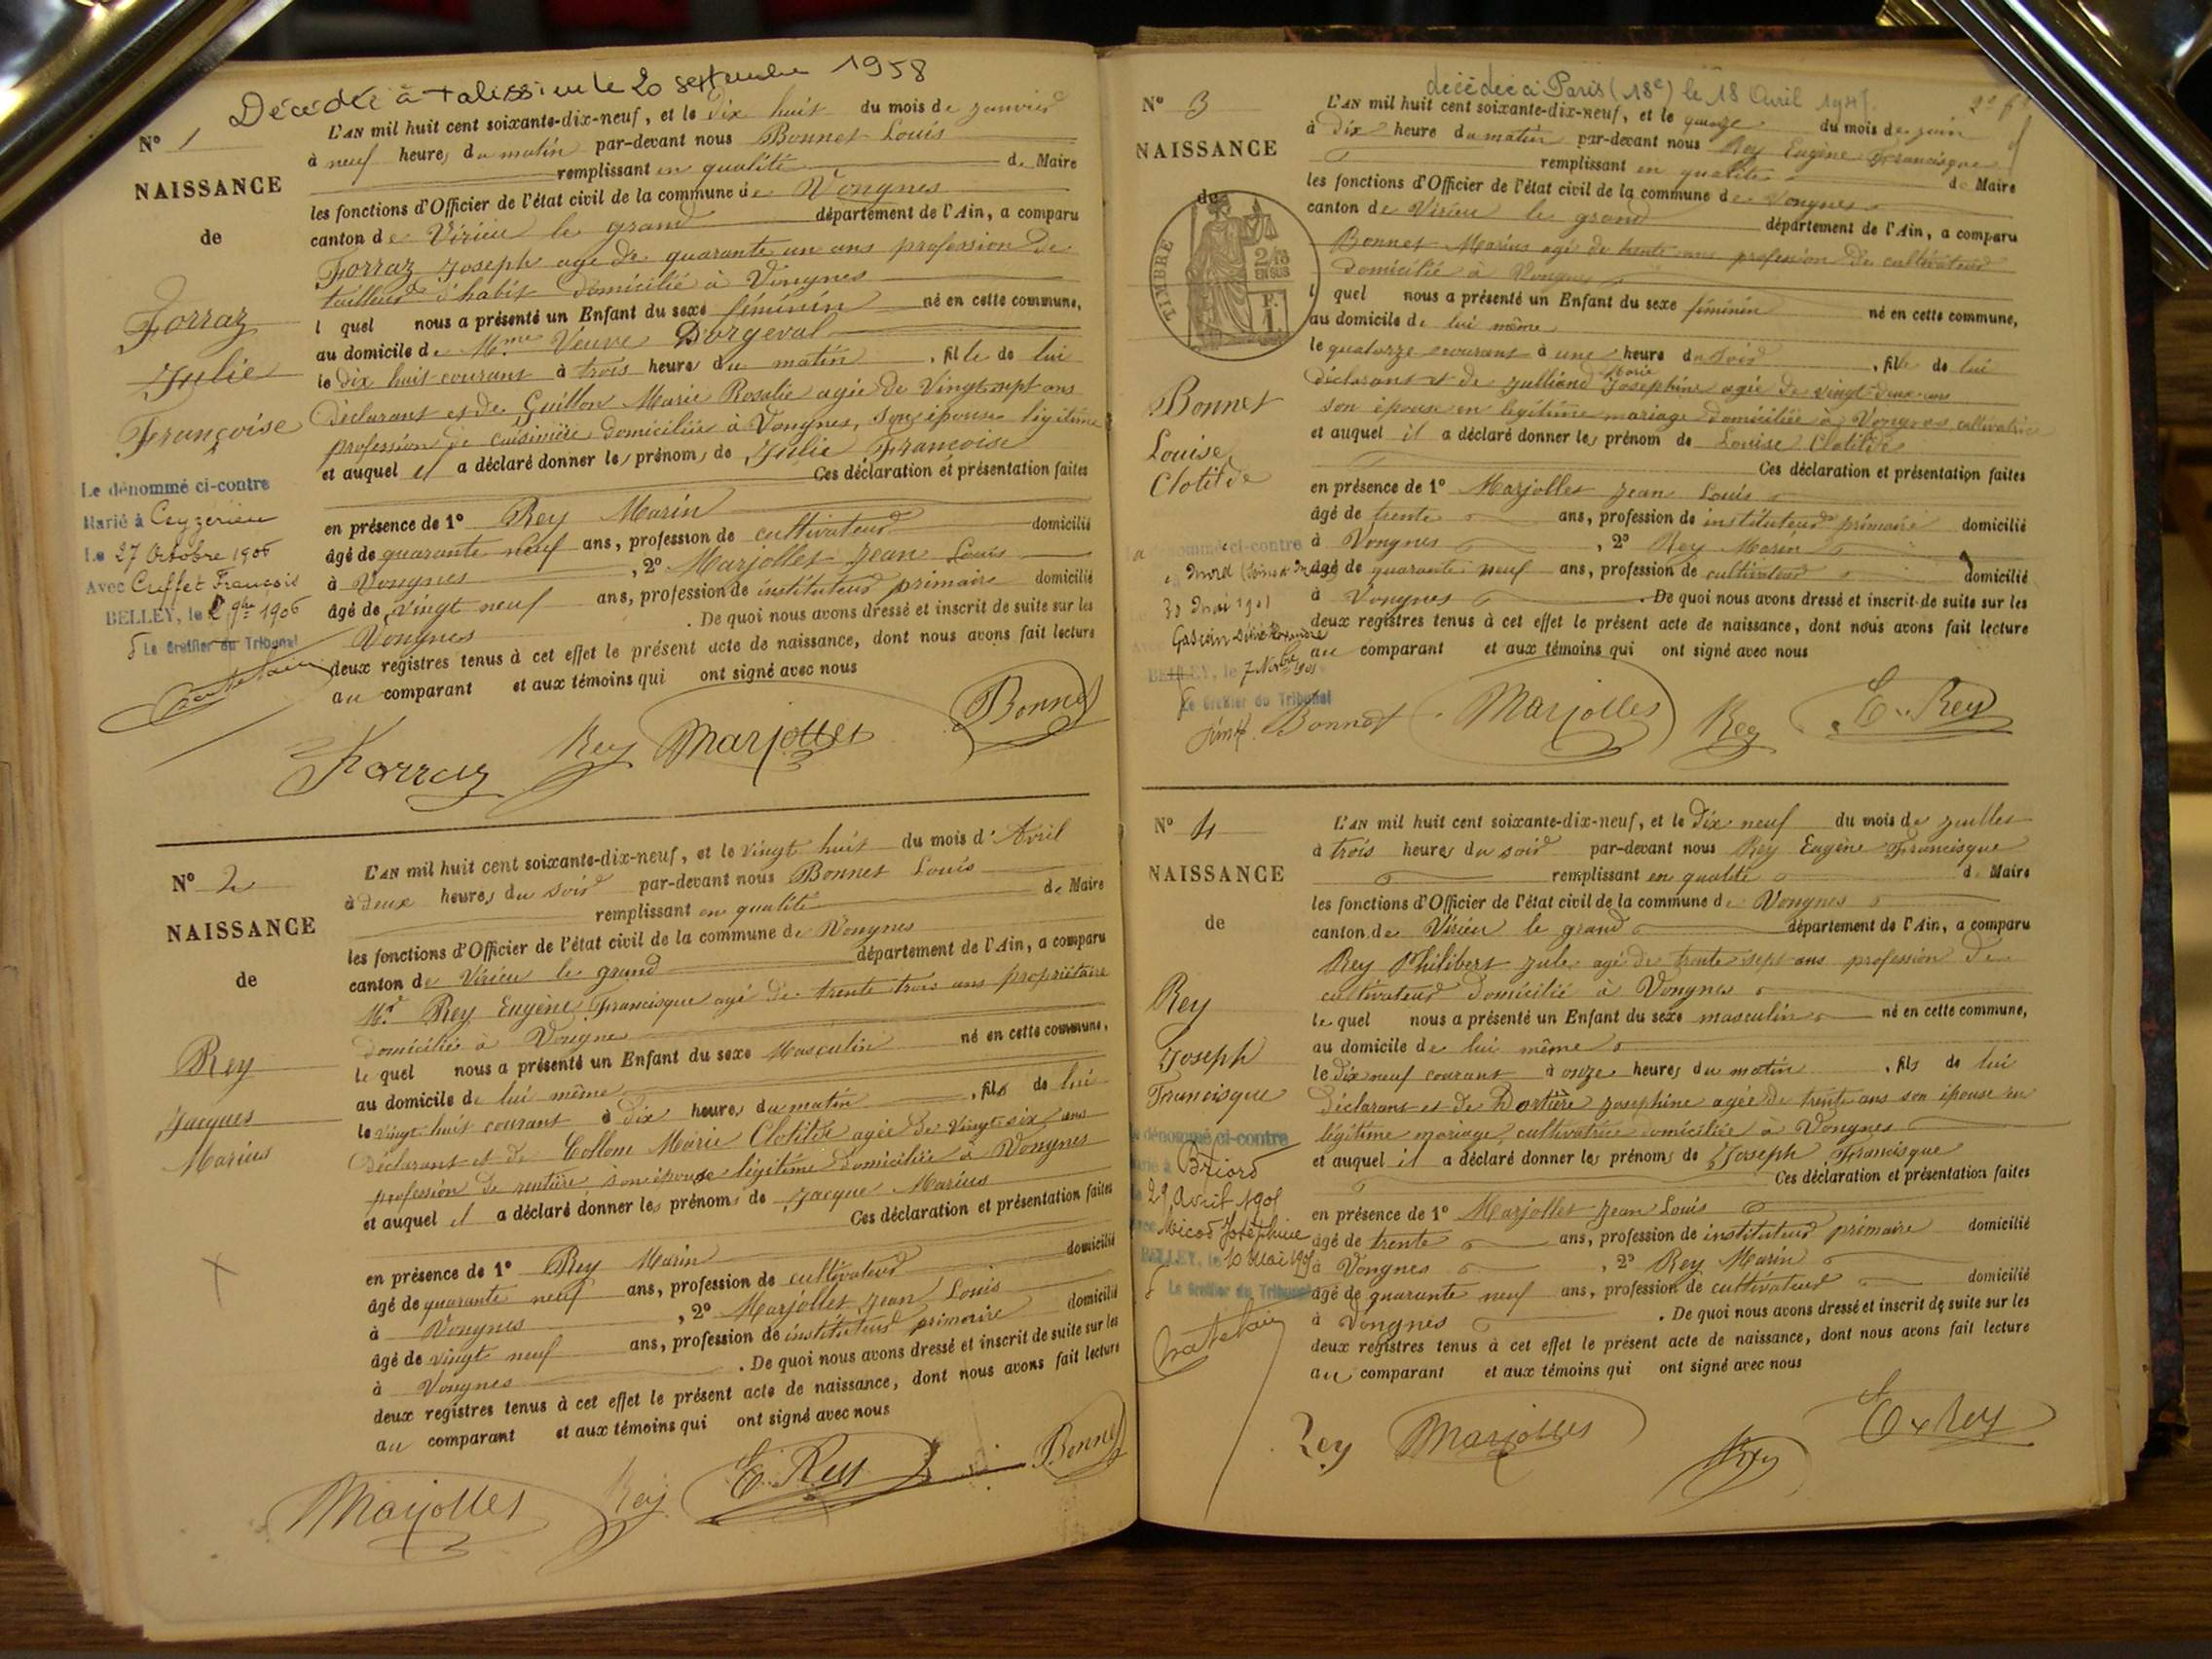 Décédée à Talissieu le 20 septembre 1958
N° 1
NAISSANCE
de
Forraz
Julie
Françoise
Le dénommé ci-contre
Marié à Ceyzerieu
Le 27 Octobre 1906
Avec Cuffet François
BELLEY, le 1906
Le Greffier du Tribunal
L'AN mil huit cent soixante-dix-neuf, et le dix huit du mois de janvier
à neuf heures du matin par-devant nous Bonnet Louis
remplissant en qualité de Maire
les fonctions d'Officier de l'état civil de la commune de Vongnes
canton de Virieu le grand département de l'Ain, a comparu
Forraz Joseph age de quarante un ans profession de
tailleur d'habit domicilié à Vongnes
l quel nous a présenté un Enfant du sexe féminin né en cette commune,
au domicile de Mme Veuve Dorgeval
le dix huit courant à trois heures du matin , fille de lui
déclarant et de Guillon Marie Rosalie agée de vingt sept ans
profession de cuisinière domiciliée à Vongnes, son épouse légitime
et auquel il a déclaré donner les prénoms de Julie Françoise
Ces déclaration et présentation faites
en présence de 1° Rey Marin
âgé de quarante neuf ans, profession de cultivateur domicilié
à Vongnes , 2° Marjollet Jean Louis
âgé de vingt neuf ans, profession de instituteur primaire domicilié
Vongnes . De quoi nous avons dressé et inscrit de suite sur les
deux registres tenus à cet effet le présent acte de naissance, dont nous avons fait lecture
au comparant et aux témoins qui ont signé avec nous
Forraz Rey Marjollet Bonnet
N° 2
NAISSANCE
de
Rey
Jacques
Marius
L'AN mil huit cent soixante-dix-neuf, et le vingt huit du mois d'Avril
à deux heures du soir par-devant nous Bonnet Louis
remplissant en qualité de Maire
les fonctions d'Officier de l'état civil de la commune de Vongnes
canton de Virieu le grand département de l'Ain, a comparu
Mr Rey Eugène Francisque agé de trente trois ans propriétaire
domicilié à Vongne
le quel nous a présenté un Enfant du sexe Masculin né en cette commune,
au domicile de lui même
le vingt huit courant à dix heures du matin , fils de lui
déclarant et de Collom Marie Clotilde agée de vingt six ans
profession de rentière son épouse légitime domiciliée à Vongnes
et auquel il a déclaré donner les prénoms de Jacque Marius
Ces déclaration et présentation faites
en présence de 1° Rey Marin
âgé de quarante neuf ans, profession de cultivateur domicilié
à Vongnes , 2° Marjollet Jean Louis
âgé de vingt neuf ans, profession de instituteur primaire domicilié
à Vongnes . De quoi nous avons dressé et inscrit de suite sur les
deux registres tenus à cet effet le présent acte de naissance, dont nous avons fait lecture
au comparant et aux témoins qui ont signé avec nous
Marjollet Rey E. Rey Bonnet
décédée à Paris (18e) le 18 Avril
N° 3
NAISSANCE
de
TIMBRE
2/10
EN SUS
Bonnet
Louise
Clotilde
ci-contre
BELLEY, le 7
Le Greffier du Tribunal
L'AN mil huit cent soixante-dix-neuf, et le quinze du mois de juin
à dix heure du matin par-devant nous Rey Eugène Francisque
remplissant en qualité de Maire
les fonctions d'Officier de l'état civil de la commune de Vongnes
canton de Virieu le grand département de l'Ain, a comparu
Bonnet Marius agé de trente ans profession de cultivateur
domicilié à Vongnes
l quel nous a présenté un Enfant du sexe féminin né en cette commune,
au domicile de lui même
le quatorze courant à une heure du soir , fille de lui
déclarant et de Julliand Marie Josephine agée de vingt deux ans
son épouse en légitime mariage domiciliée à Vongnes cultivatrice
et auquel il a déclaré donner les prénom de Louise Clotilde
Ces déclaration et présentation faites
en présence de 1° Marjollet Jean Louis
âgé de trente ans, profession de instituteur primaire domicilié
à Vongnes , 2° Rey Marin
âgé de quarante neuf ans, profession de cultivateur domicilié
à Vongnes . De quoi nous avons dressé et inscrit de suite sur les
deux registres tenus à cet effet le présent acte de naissance, dont nous avons fait lecture
au comparant et aux témoins qui ont signé avec nous
Bonnet Marjollet Rey E. Rey
N° 4
NAISSANCE
de
Rey
Joseph
Francisque
dénommé ci-contre
Briord
29 avril
Micod Joséphine
BELLEY, le 10 Mai
Le Greffier du Tribunal
L'AN mil huit cent soixante-dix-neuf, et le dix neuf du mois de juillet
à trois heures du soir par-devant nous Rey Eugène Francisque
remplissant en qualité de Maire
les fonctions d'Officier de l'état civil de la commune de Vongnes
canton de Virieu le grand département de l'Ain, a comparu
Rey Philibert Jule agé de trente sept ans profession de
cultivateur domicilié à Vongnes
le quel nous a présenté un Enfant du sexe masculin né en cette commune,
au domicile de lui même
le dix neuf courant à onze heures du matin , fils de lui
déclarant et de Dortière Josephine agée de trente ans son épouse en
légitime mariage, cultivatrice domiciliée à Vongnes
et auquel il a déclaré donner les prénoms de Joseph Francisque
Ces déclaration et présentation faites
en présence de 1° Marjollet Jean Louis
âgé de trente ans, profession de instituteur primaire domicilié
à Vongnes , 2° Rey Marin
âgé de quarante neuf ans, profession de cultivateur domicilié
à Vongnes . De quoi nous avons dressé et inscrit de suite sur les
deux registres tenus à cet effet le présent acte de naissance, dont nous avons fait lecture
au comparant et aux témoins qui ont signé avec nous
Rey Marjollet Rey E. Rey